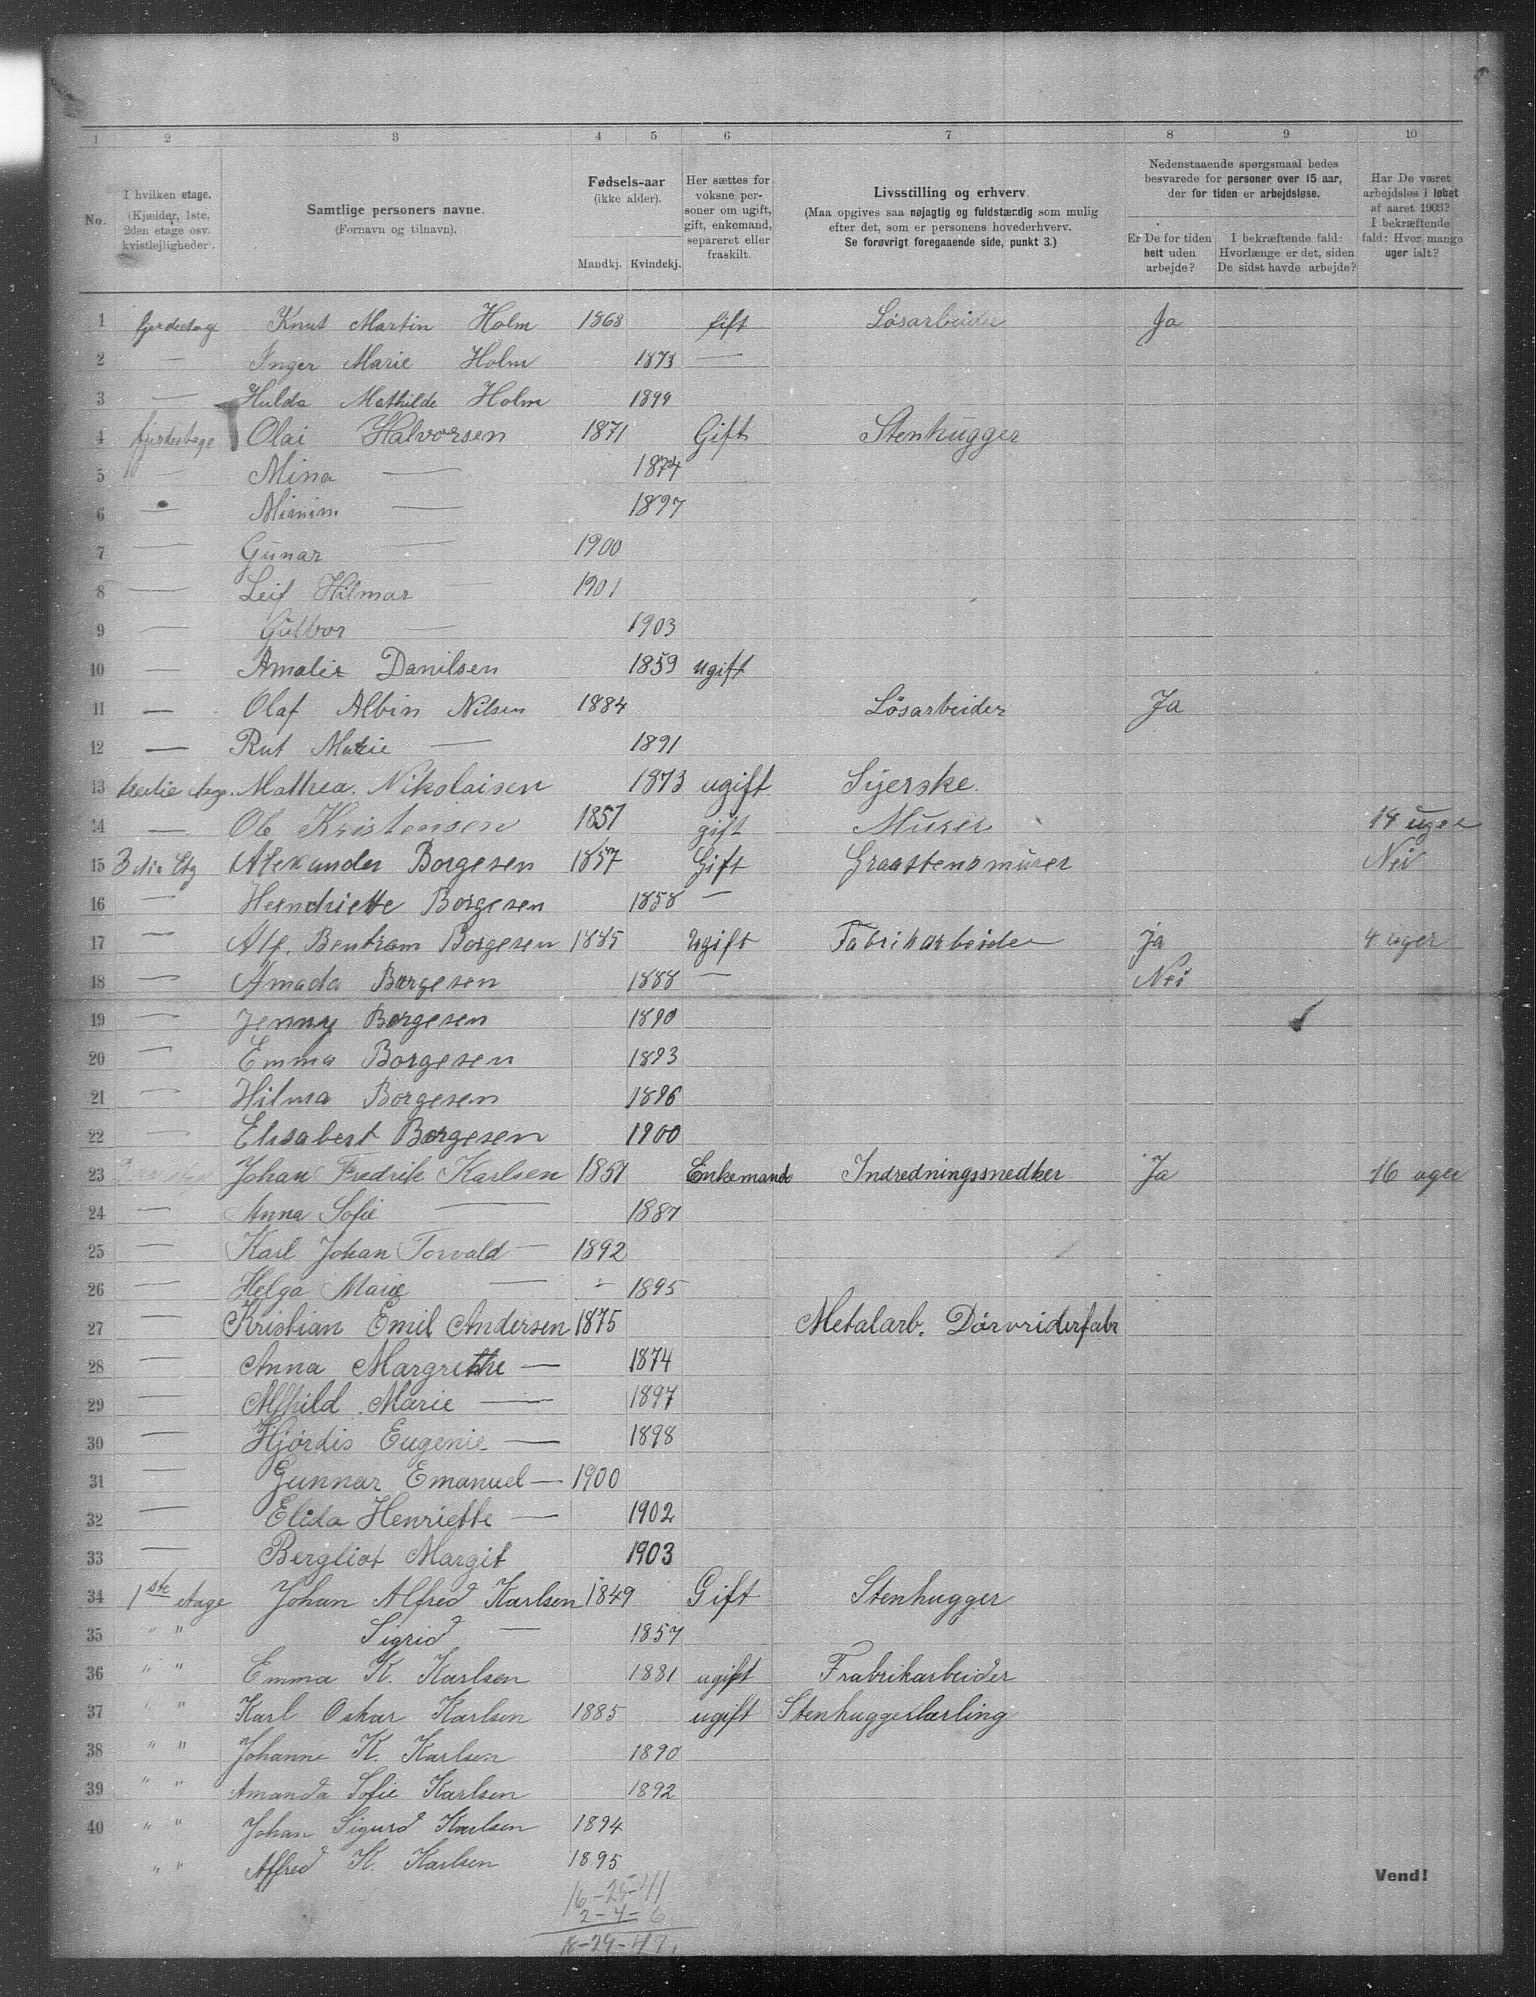 1 2 3 4 5 6 7 8 9 10
No.
I hvilken etage.
(Kjælder, 1ste,
2den etage osv.
kvistlejligheder.
Samtlige personers navne.
(Fornavn og tilnavn).
Fødsels-aar
(ikke alder).
Mandkj. Kvindekj.
Her sættes for
voksne per-
soner om ugift,
gift, enkemand,
separeret eller
fraskilt.
Livsstilling og erhverv
(Maa opgives saa nøjagtig og fuldstændig som mulig
efter det, som er personens hovederhverv.
Se forøvrigt foregaaende side, punkt 3.)
Nedenstaaende spørgsmaal bedes
besvarede for personer over 15 aar,
der for tiden er arbejdsløse.
Er De for tiden
helt uden
arbejde?
I bekræftende fald:
Hvorlænge er det, siden
De sidst havde arbejde?
Har De været
arbejdsløs i løbet
af aaret 1903?
I bekræftende
fald: Hvor mange
uger ialt?
1 fjerdeetage Knut Martin Holm 1868 Gift Løsarbeider Ja
2 — Inger Marie Holm 1873 —
3 — Hulda Mathilde Holm 1899
4 fjerdeetage Olai Halvorsen 1871 Gift Stenhugger
5 — Mina — 1874
6 — Mimim — 1897
7 — Gunar — 1900
8 — Leif Hilmar — 1901
9 — Gulbor — 1903
10 — Amalie Danilsen 1859 ugift
11 — Olaf Albin Nilsen 1884 Løsarbeider Ja
12 — Rut Marie — 1891
13 tredie etage. Mathea. Nikolaisen 1873 ugift Syerske.
14 — Ole Kristensen 1857 gift Murer 14 uger
15 3die Etg Alexander Borgesen 1857 Gift Graastensmurer Nei
16 — Hendriette Borgesen 1858 —
17 — Alf. Bentram Borgesen 1885 Ugift Fabrikarbeider Ja 4 uger
18 — Amada Borgesen 1888 — Nei
19 — Jenny Borgesen 1890
20 — Emma Borgesen 1893
21 — Hilma Borgesen 1896
22 — Elisabert Borgesen 1900
23 Johan Fredrik Karlsen 1857 Enkemand Indredningssnedker Ja 16 uger
24 — Anna Sofie — 1887
25 — Karl Johan Torvald — 1892
26 — Helga Marie — 1895
27 — Kristian Emil Andersen 1875 Metalarb. Dørvriderfabr
28 — Anna Margrethe — 1874
29 — Alfhild Marie — 1897
30 — Hjørdis Eugenie — 1898
31 — Gunnar Emanuel — 1900
32 — Elida Henriette — 1902
33 — Bergliot Margit 1903
34 1ste etage Johan Alfred Karlsen 1849 Gift Stenhugger
35 " " Sigrid — 1857
36 " " Emma K. Karlsen 1881 ugift Frabrikarbeider
37 " " Karl Oskar Karlsen 1885 ugift Stenhuggerlærling
38 " " Johanne K. Karlsen 1890
39 " " Amanda Sofie Karlsen 1892
40 " " Johan Sigurd Karlsen 1894
" " Alfred K. Karlsen 1895
Vend!
16-25-41
2-4-6
18-29-47.